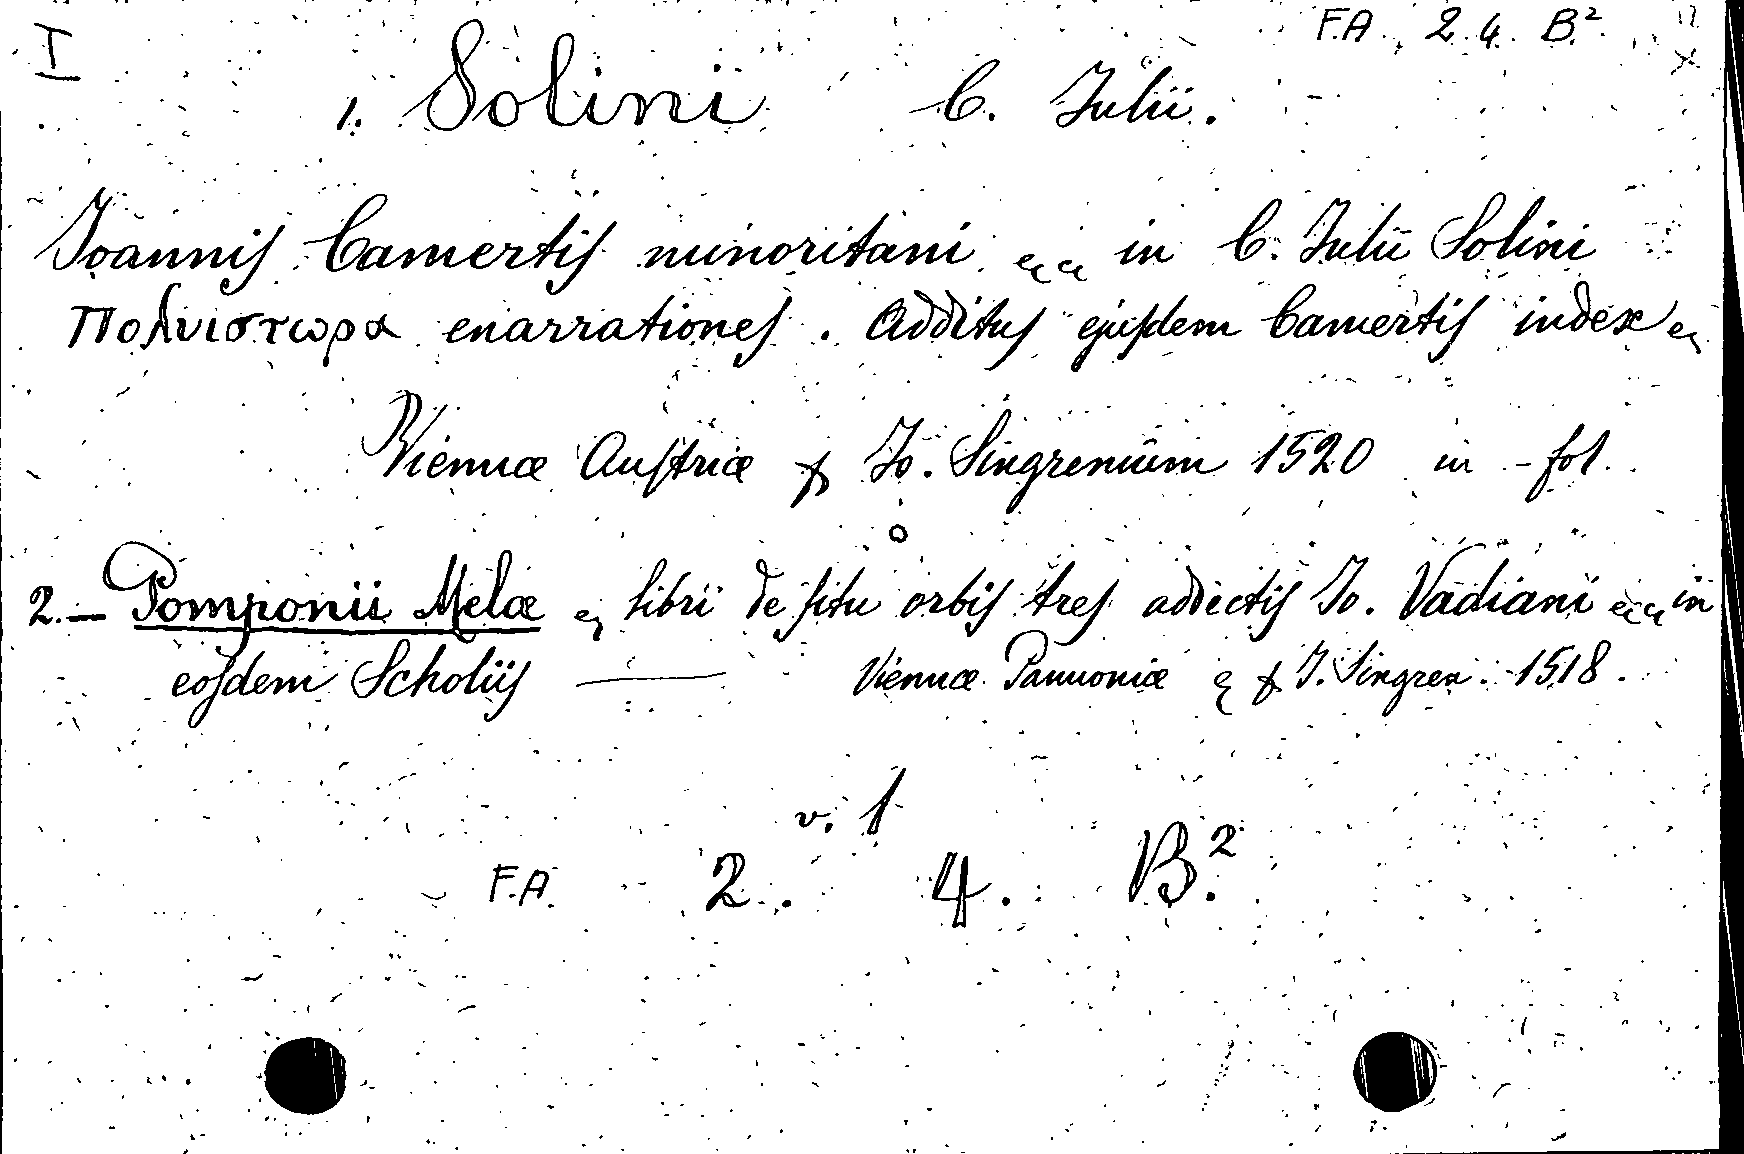 I
F.A. 2. 4. B.²
1. Solini C. Julii.
Joannis Camertis minoritani in C. Julii Solini
Πολυιστωρα enarrationes. Additus ejusdem Camertis index
Viennæ Austriæ Jo. Singrenium 1520 in-fol.
2.— Pomponii Melæ libri de situ orbis tres adiectis Jo. Vadiani in
eosdem Scholiis — Viennæ Pannoniæ J. Singren. 1518.
v. 1
F.A. 2. 4. B.²